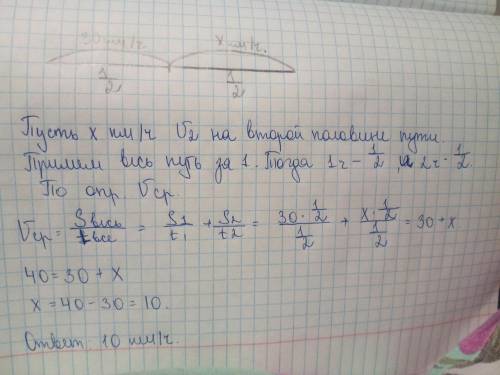 30 км/ч. x км/ч.
1/2 1/2
Пусть x км/ч V2 на второй половине пути.
Примем весь путь за 1. Тогда 1ч - 1/2, а 2ч - 1/2.
По опр. Vср.
Vср = Sвесь/tвсё = S1/t1 + S2/t2 = (30·1/2)/(1/2) + (x·1/2)/(1/2) = 30+x
40 = 30 + x
x = 40 - 30 = 10.
Ответ: 10 км/ч.